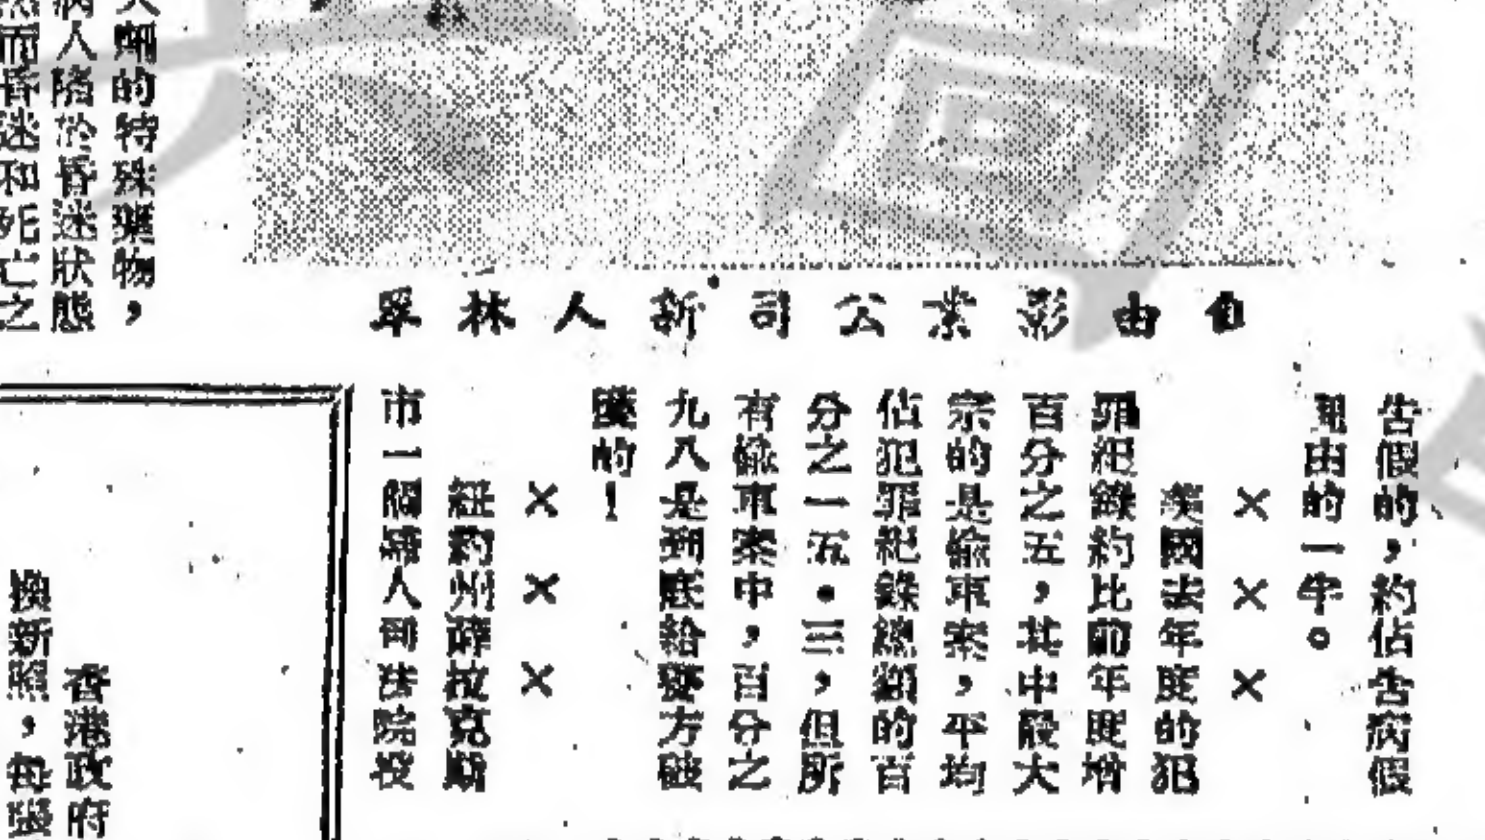 自由影業公司新人林翠
告假的，約佔告病假
理由的一半。
×××
美國去年度的犯
罪紀錄約比前年度增
百分之五，其中最大
宗的是偷車案，平均
佔犯罪紀錄總額的百
分之一五．三，但所
有偷車案中，百分之
九八是到底給警方破
獲的！
×××
紐約州薛拔克斯
市一個婦人到法院投
大烟的特殊藥物，
病人陷於昏迷狀態
而昏迷和死亡之
香港政府
換新照，每張